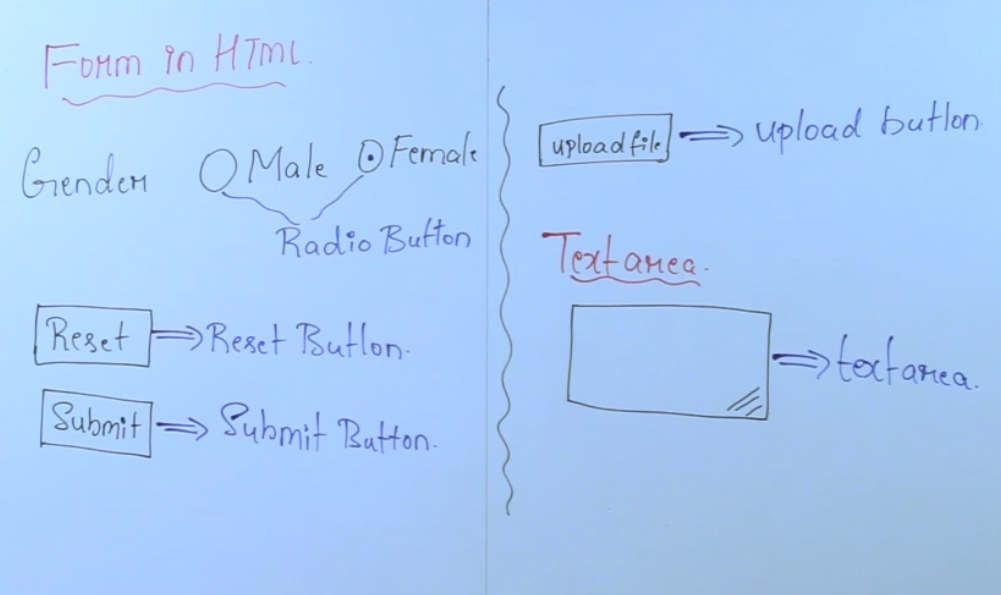 Form in HTML.
Gender Male Female
Radio Button
Reset Reset Button.
Submit Submit Button.
upload file upload button.
Textarea.
textarea.